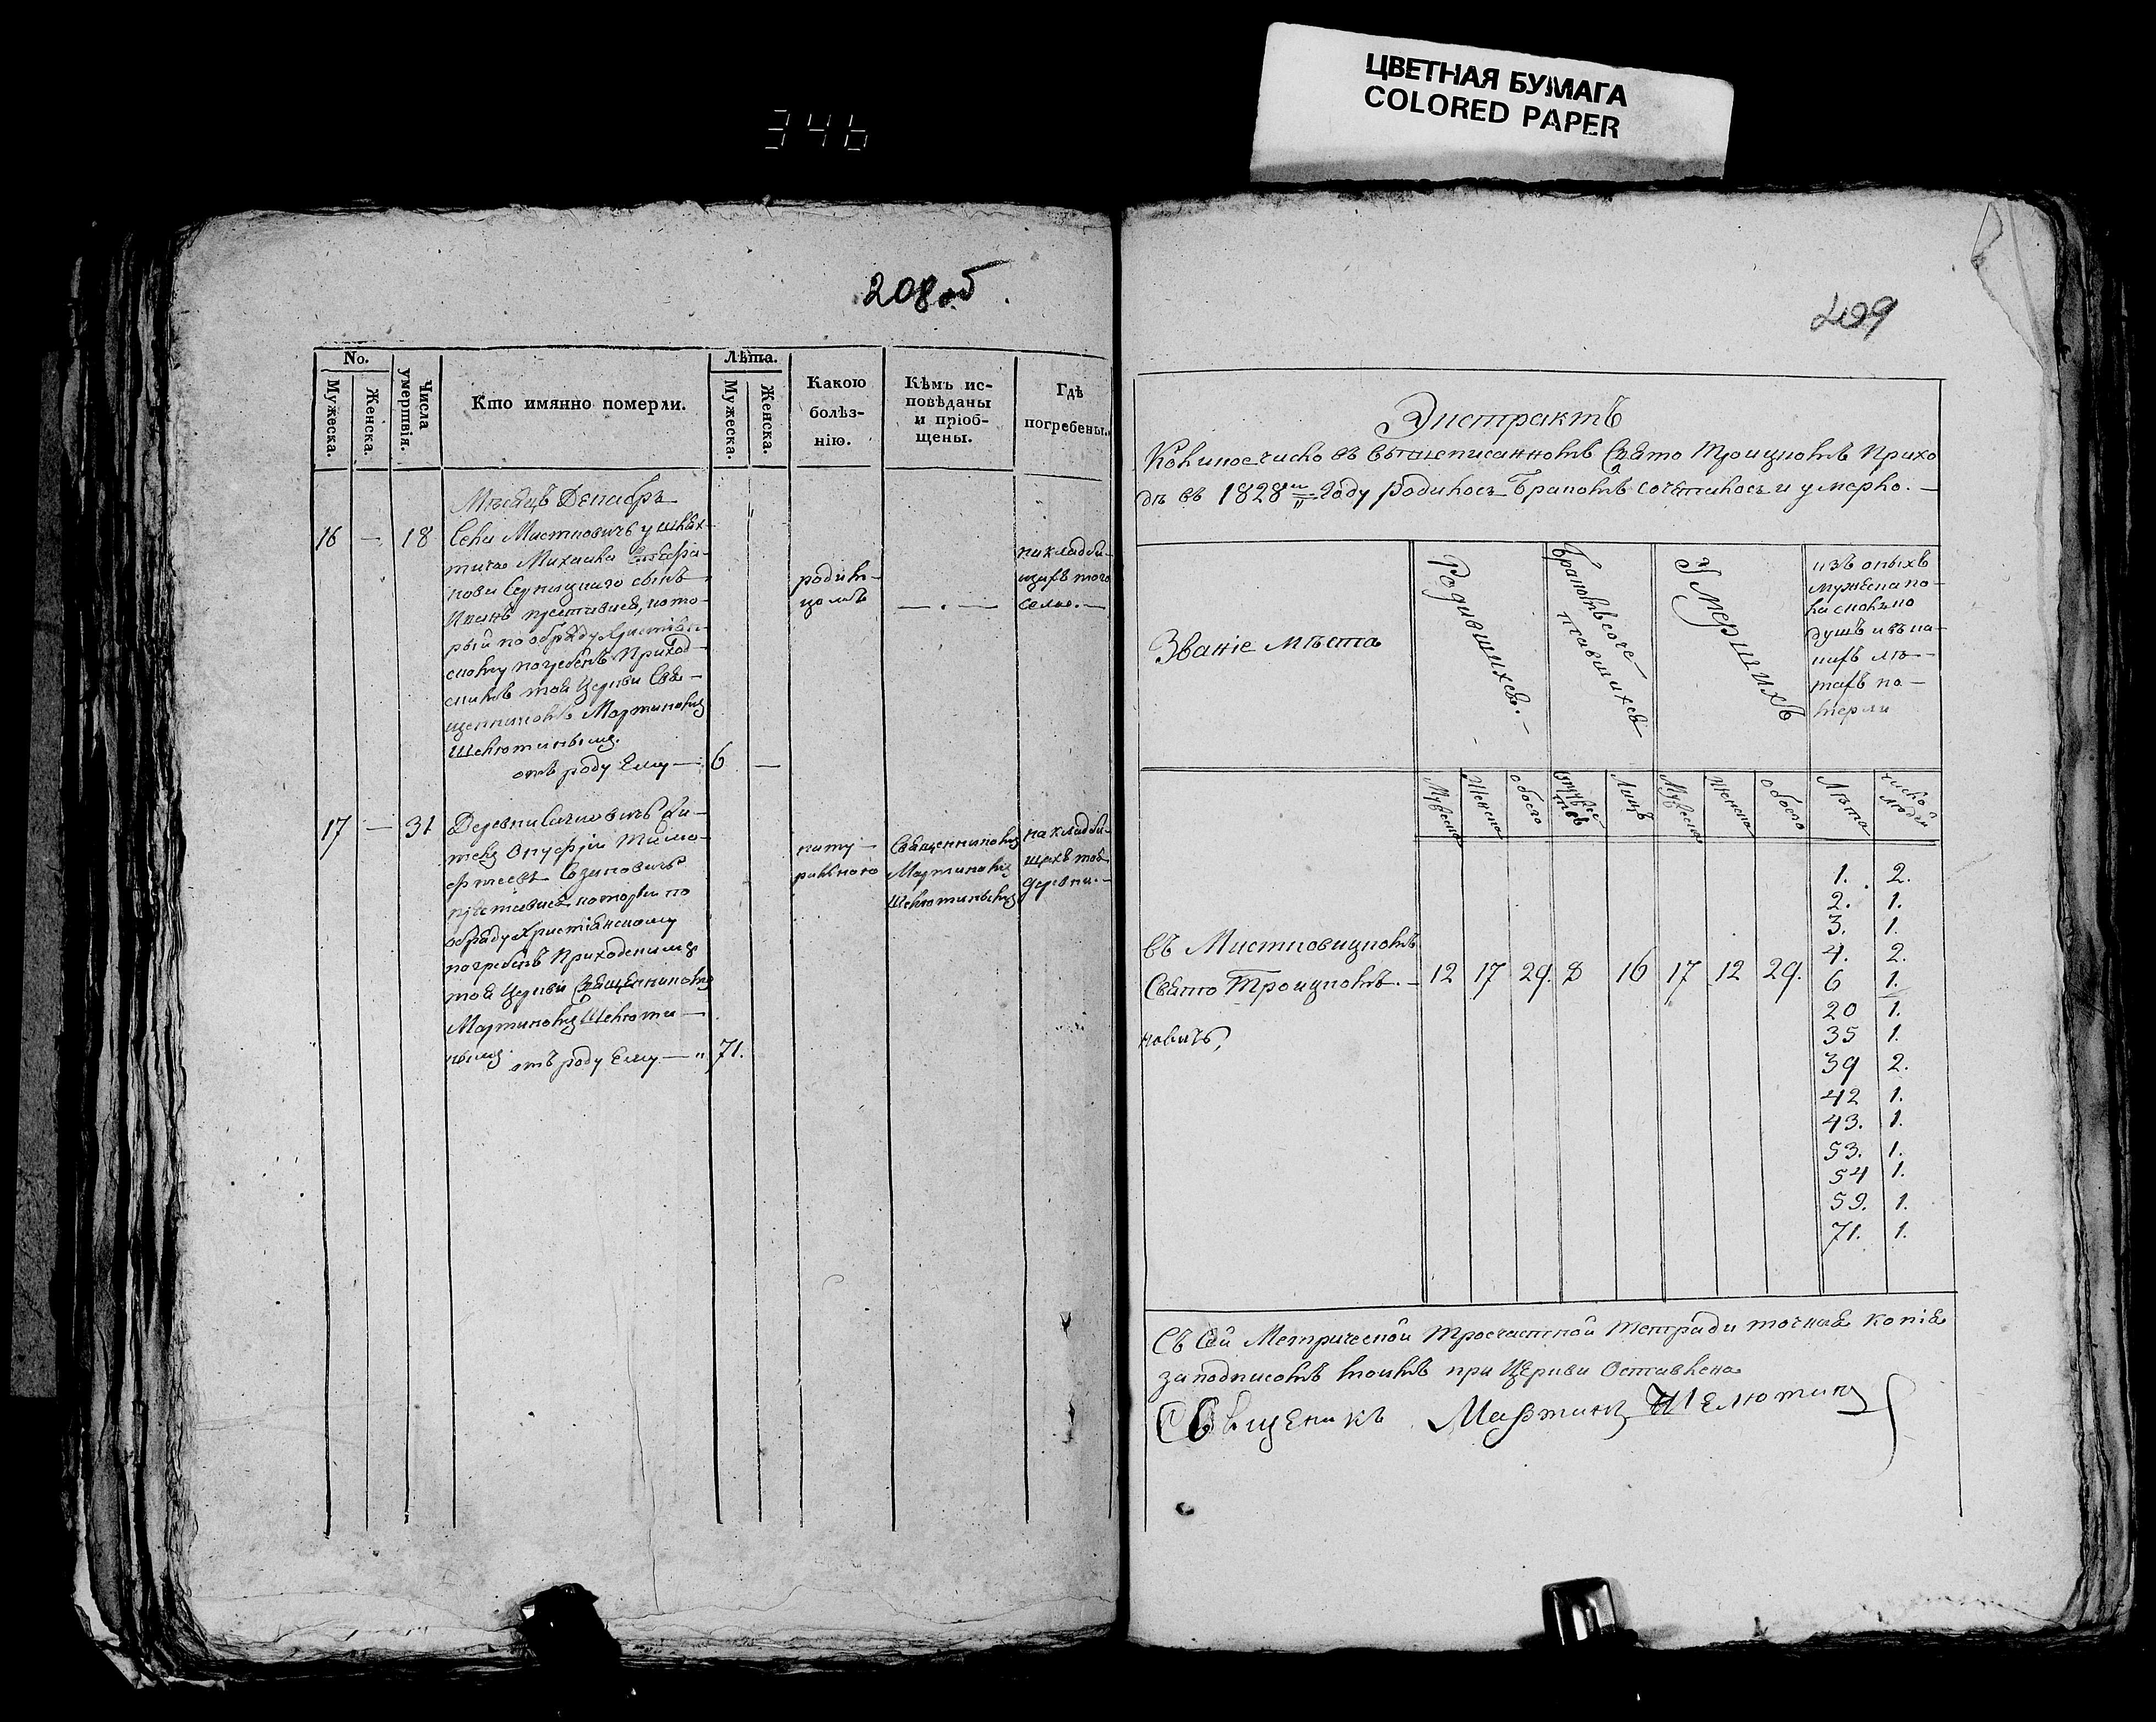 ЦВЕТНАЯ БУМАГА
COLORED PAPER
346
208 об.
No.
Мужеска.
Женска.
Числа умертвія.
Кто имянно померли.
Лѣта.
Мужеска.
Женска.
Какою
болѣз-
нію.
Кѣмъ ис-
повѣданы
и пріоб-
щены.
Гдѣ
погребены.
Мѣсяцъ Декабрь
16 — 18 Села Мистковичъ
Михаила Стефа-
нова сынъ
Иванъ преставися, кото-
рый по обряду Христіан-
скому погребенъ Приход-
скимъ той Церкви Свя-
щенникомъ Мартиномъ
Шелютинымъ.
отъ роду Ему — 6 —
родим-
цомъ
— . —
на кладби-
щахъ того
села. —
17 — 31 Деревни жи-
тель Онуфрій Тимо-
феевъ
преставися который по
обряду Христіанскому
погребенъ Приходскимъ
той Церкви Священникомъ
Мартиномъ Шелюти-
нымъ отъ роду Ему — " 71.
нату-
рально
Священникомъ
Мартиномъ
Шелютинымъ
на кладби-
щахъ той
деревни. —
209
Экстрактъ
Коликое число въ вышеписанномъ Свято Троицкомъ Прихо
дѣ въ 1828м году родилось Бракомъ сочеталось и умерло. —
Званіе мѣста
Родившихся. —
Бракомъ соче-
тавшихся
Умершихъ
изъ оныхъ
мужеска по-
ла сколько
душъ и въ ка-
кихъ лѣ-
тахъ по-
мерли
Мужеска
Женска
обоего
Лицъ
Мужеска
Женска
обоего
Лѣта
число людей
въ Мистковицкомъ
Свято Троицкомъ. — 12 17 29. 8 16 17 12 29.
1. 2.
2. 1.
3. 1.
4. 2.
6 1.
20 1.
35 1.
39 2.
42 1.
43. 1.
53. 1.
54 1.
59. 1.
71. 1.
Съ Сей Метрической Троечастной Тетради точная копія
за подписомъ моимъ при Церкви Оставлена
Священикъ Мартинъ Шелютинъ